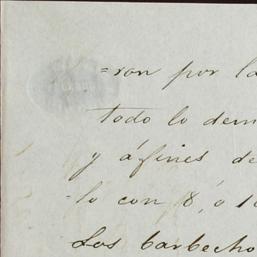 =ron por la
todo lo dem
y á fines de
lo con 8, o 10
Los barbecho